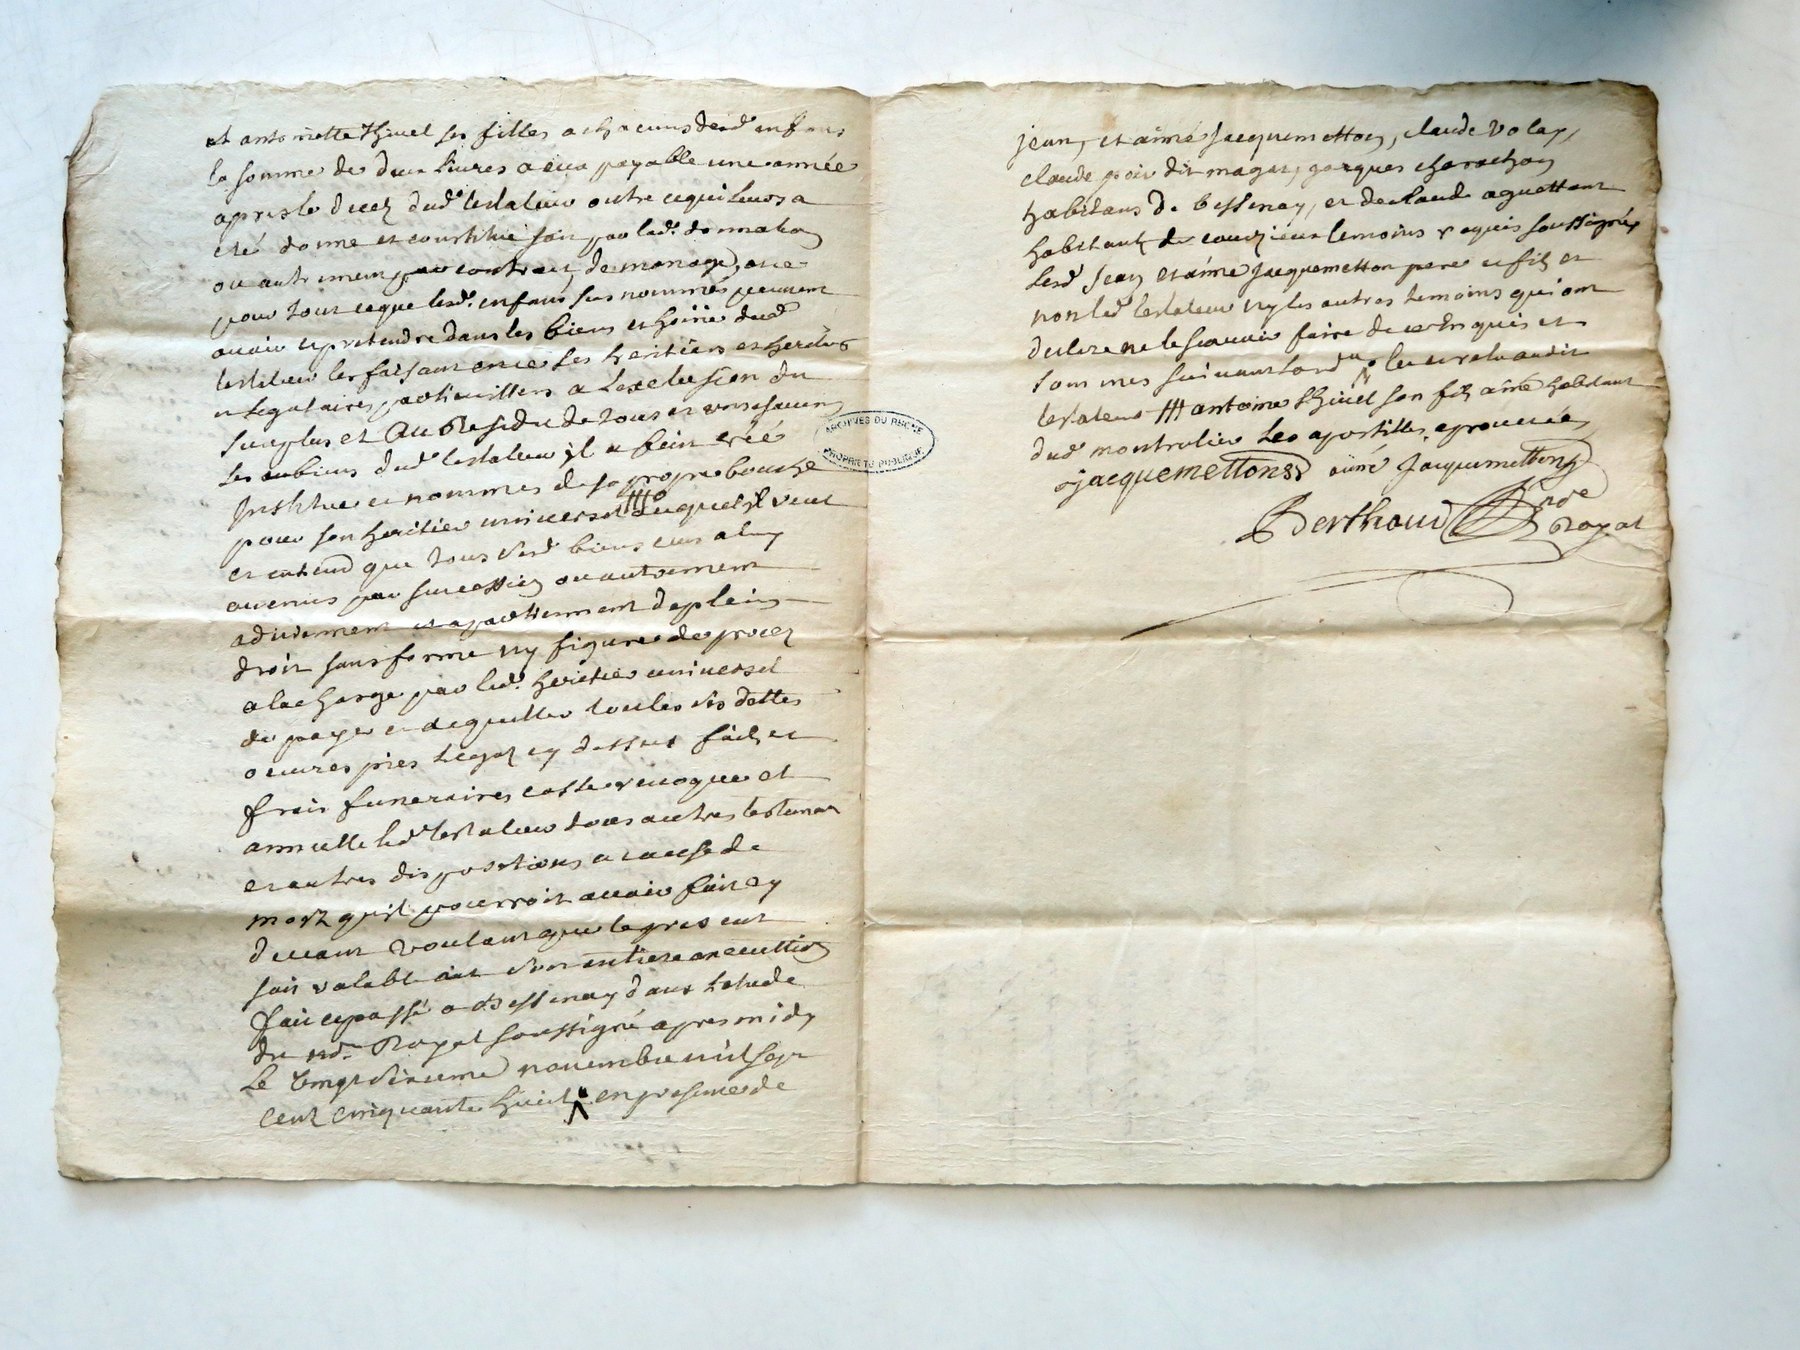 et antoinette thivel ses filles a chacuns desd enfans
la somme de deux livres a eux payable une année
apres le decez dud. testateur outre ce qui leurs a
eté donné et constitué soit par lad. donnation
ou autrement par contract de mariage, et ce
pour tout ce que lesd. enfans sus nommés peuvent
avoir et pretendre dans les biens et hoirie dud
testateur les faisant en ce ses heritiers et
et legataires particulliers a lexclusion du
surplus et Au Residu de tous et
les biens dud testateur il a fait créé
Institué et nommés de sa propre bouche
pour son heritier universel # auquel il veut
et entend que tous sesd biens eux a luy
avenus par succession ou autrement
adviennent et apartiennent de plein
droit sans forme ny figure de procez
a la charge par led. heritier universel
de payer et acquitter toutes ses dettes
oeuvres pies legaz cy dessus faits et
frais funeraires casse revoque et
annulle led testateur tous autres testamans
et autres dispositions a cause de
mort quil pourroit avoir fait cy
devant voulant que le present
soit valable ait son entiere execution
fait et passé a Bessenay dans letude
du no.re Royal soussigné apres midy
le vingt sixieme novembre mil sept
cent cinquante huit en presence de
ARCHIVES DU RHONE
PROPRIETE PUBLIQUE
jean, et aimé jacquemetton, claude volay,
claude poir dit magat, jacques charachon
habitans de bessenay, et de claude aguettant
habitant de courzieux temoins requis soussignés
lesd jean et aimé jacquemetton pere et fils et
non led testateur ny les autres temoins qui ont
declaré ne le scavoir faire de ce enquis et
sommes suivant lord.ce leu et relu audit
testateur # antoine thivel son fils ainé habitant
dud montrolier les apostilles aprouvées
jacquemettons aimé jacquemetton
Berthoud n.re
Royal